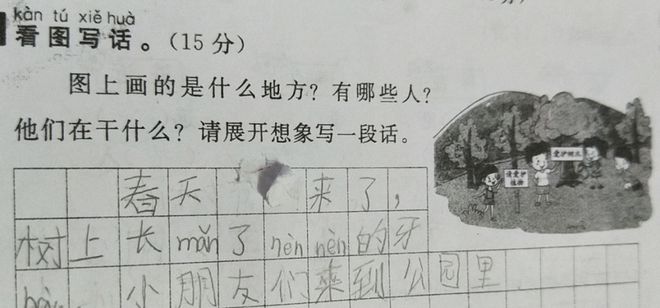 kàn tú xiě huà
看图写话。（15 分）
图上画的是什么地方？有哪些人？
他们在干什么？请展开想象写一段话。
爱护树木
请爱护
植物
春天 来了，
树上长mǎn了nèn nèn的牙
小朋友们来到公园里